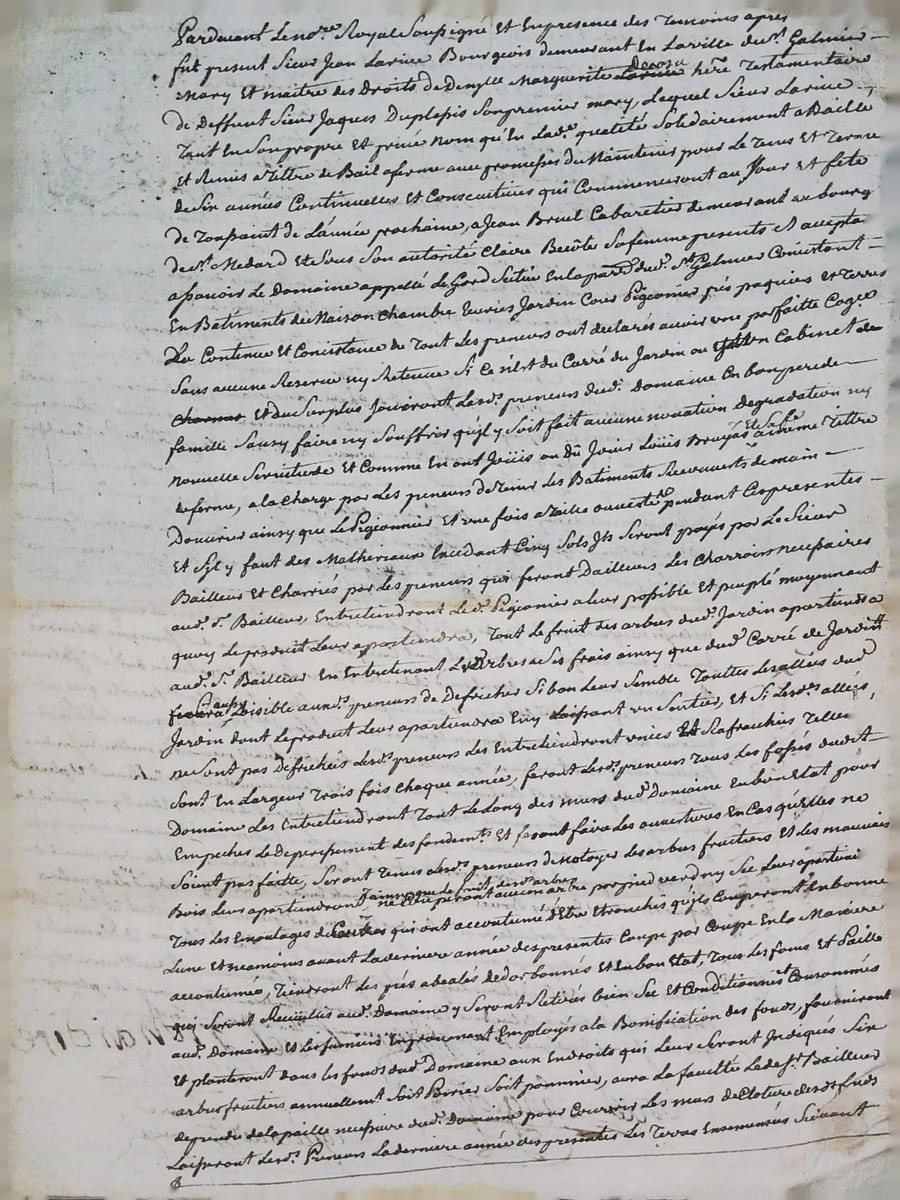 Pardevant Le no.re Royal Soussigné Et En presence des Temoins apres
fut present Sieur Jean Larive Bourgeois demeurant En Laville de S.t Galmier
Mary Et maitre des Droits de Dem.lle Marguerite Larive here Testamentaire
de Deffunt Sieur Jaques Duplessis Son premier mary, Lequel Sieur Larive
Tant En Son propre Et privé Nom qu'En Lad.e qualité Solidairement a Baillé
Et Remis a Tittre de Bail aferme aux promesses du Maintenir pour Le Tems Et Terme
de Six années Continuelles Et Consecutives qui Commenceront au Jour Et fete
de Toussaint de L'année prochaine, a Jean Bruel Cabaretier demeurant au bourg
de S.t Medard Et Sous Son autorité Claire Sa femme presents Et accepta
a Scavoir Le Domaine appellé Le Gord Scitué En la par.se de S.t Galmier Consistant
En Batiments de Maison Chambre Ecuries Jardin Cour Pigeonier prés paquiers Et terres
De Contenue Et Consistance de Tout Les preneurs ont declarés avoir une parfaitte
Sans aucune Reserve ny Retenue Si Ce n'Est du Carré du Jardin ou Cabinet de
Et du Surplus Jouiront Lesd.s preneurs dud. Domaine En bon pere de
famille Sans y faire ny Souffrir qu'il y Soit fait aucune novation Degradation ny
nouvelle Servitude Et Comme En ont Joüis ou Dû Joüir Loüis Et Sa f.e a meme Tittre
de ferme, a la Charge par Les preneurs de Tenir Les Batiments Recouverts de main
D'ouvrier ainsy que Le Pigeonnier Et une fois a pendant Ces presentes
Et S'il y faut des Matheriaux Excedant Cinq Sols Ils Seront payés par Le Sieur
Bailleur Et Charriés par Les preneurs qui feront D'ailleurs Les Charrois necessaires
aud. S.r Bailleur, Entretiendront Le d. Pigeonier a leur possible Et peuplé moyennant
quoy Le produit Leur apartiendra, Tout Le fruit des arbres dud. Jardin apartiendra
aud. S.r Bailleur En Entretenant Les Arbres a Ses frais ainsy que dud. Carré de Jardin
Sera Loisible auxd.s preneurs de Defricher Si bon Leur Semble Touttes Les allées dud.
Jardin dont Le produit Leur apartiendra En y Laissant un Sentier, Et Si Lesd.s allées,
ne Sont pas Defrichées Lesd.s preneurs Les Entretiendront unies Et Telles
Sont En Largeur Trois fois Chaque année, feront Lesd.s preneurs Tous Les fossés dudit
Domaine Les Entretiendront Tout Le Long des murs dud. Domaine En bon Etat pour
Empecher Le Deperissement des fondem.ts Et feront faire Les ouvertures En Cas qu'Elles ne
Soient pas faitte, Seront Tenus Lesd.s preneurs de Netoyer Les arbres fruitiers Et Les mauvais
Bois Leur apartiendront ainsy que Le fruit desd.s arbres ne Couperont aucun arbre par pied verd ny Sec Leur apartien
Tous Les Emontages de qui ont accoutumé d'Etre Etronchés qu'ils Couperont En bonne
Lune Et neamoins avant La derniere année des presentes Coupe par Coupe En La Maniere
accoutumée, Tiendront Les prés abealés Et En bon Etat, Tous Les foins Et Paille
qui Seront Recueillis aud. Domaine y Seront Retirés bien Sec Et Conditionnés Et Consommés
aud. Domaine Et Les fumiers En provenant Employés a la Bonification des fonds, fourniront
Et planteront dans Les fonds dud. Domaine aux Endroits qui Leur Seront Indiqués Six
arbres fruitiers annuellem.t Soit Poirier Soit pommier, aura La faculté Led. S.r Bailleur
de prendre de la paille necessaire dud. Domaine pour Couvrir Les murs de Cloture desd. fonds
Laisseront Lesd.s Preneurs La derniere année des presentes Les Terres Ensemensées Suivant